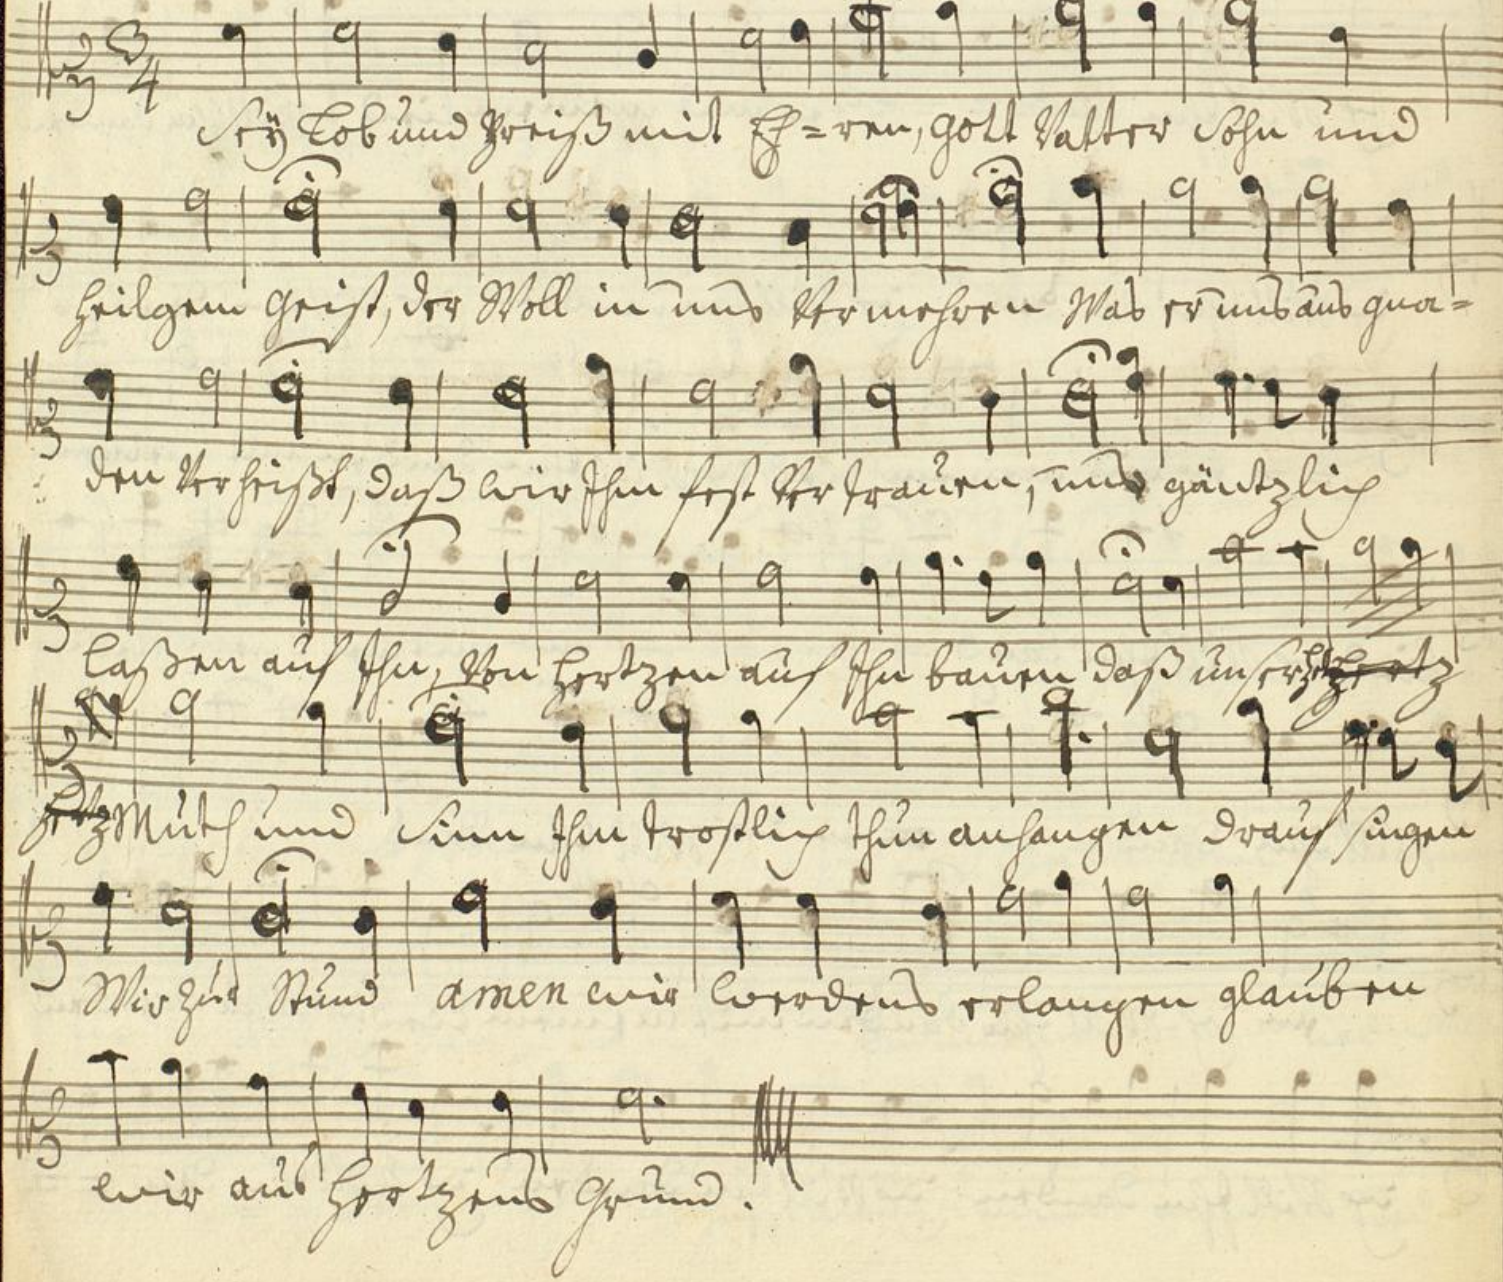 3/4
Seÿ Lob und Preiß mit Eh=ren, Gott Vatter Sohn und
heilgem Geist, der Woll in uns Vermehren Was er uns aus gna=
den Verheißt, daß wir Ihm fest Vertrauen, und gäntzlich
laßen auf Ihn, Von Hertzen auf Ihn bauen daß unser hertz
hertz Muth und Sinn Ihm trostlich thun anhangen drauf singen
Wir zur Stund amen wir werdens erlangen glauben
wir aus Hertzens Grund.